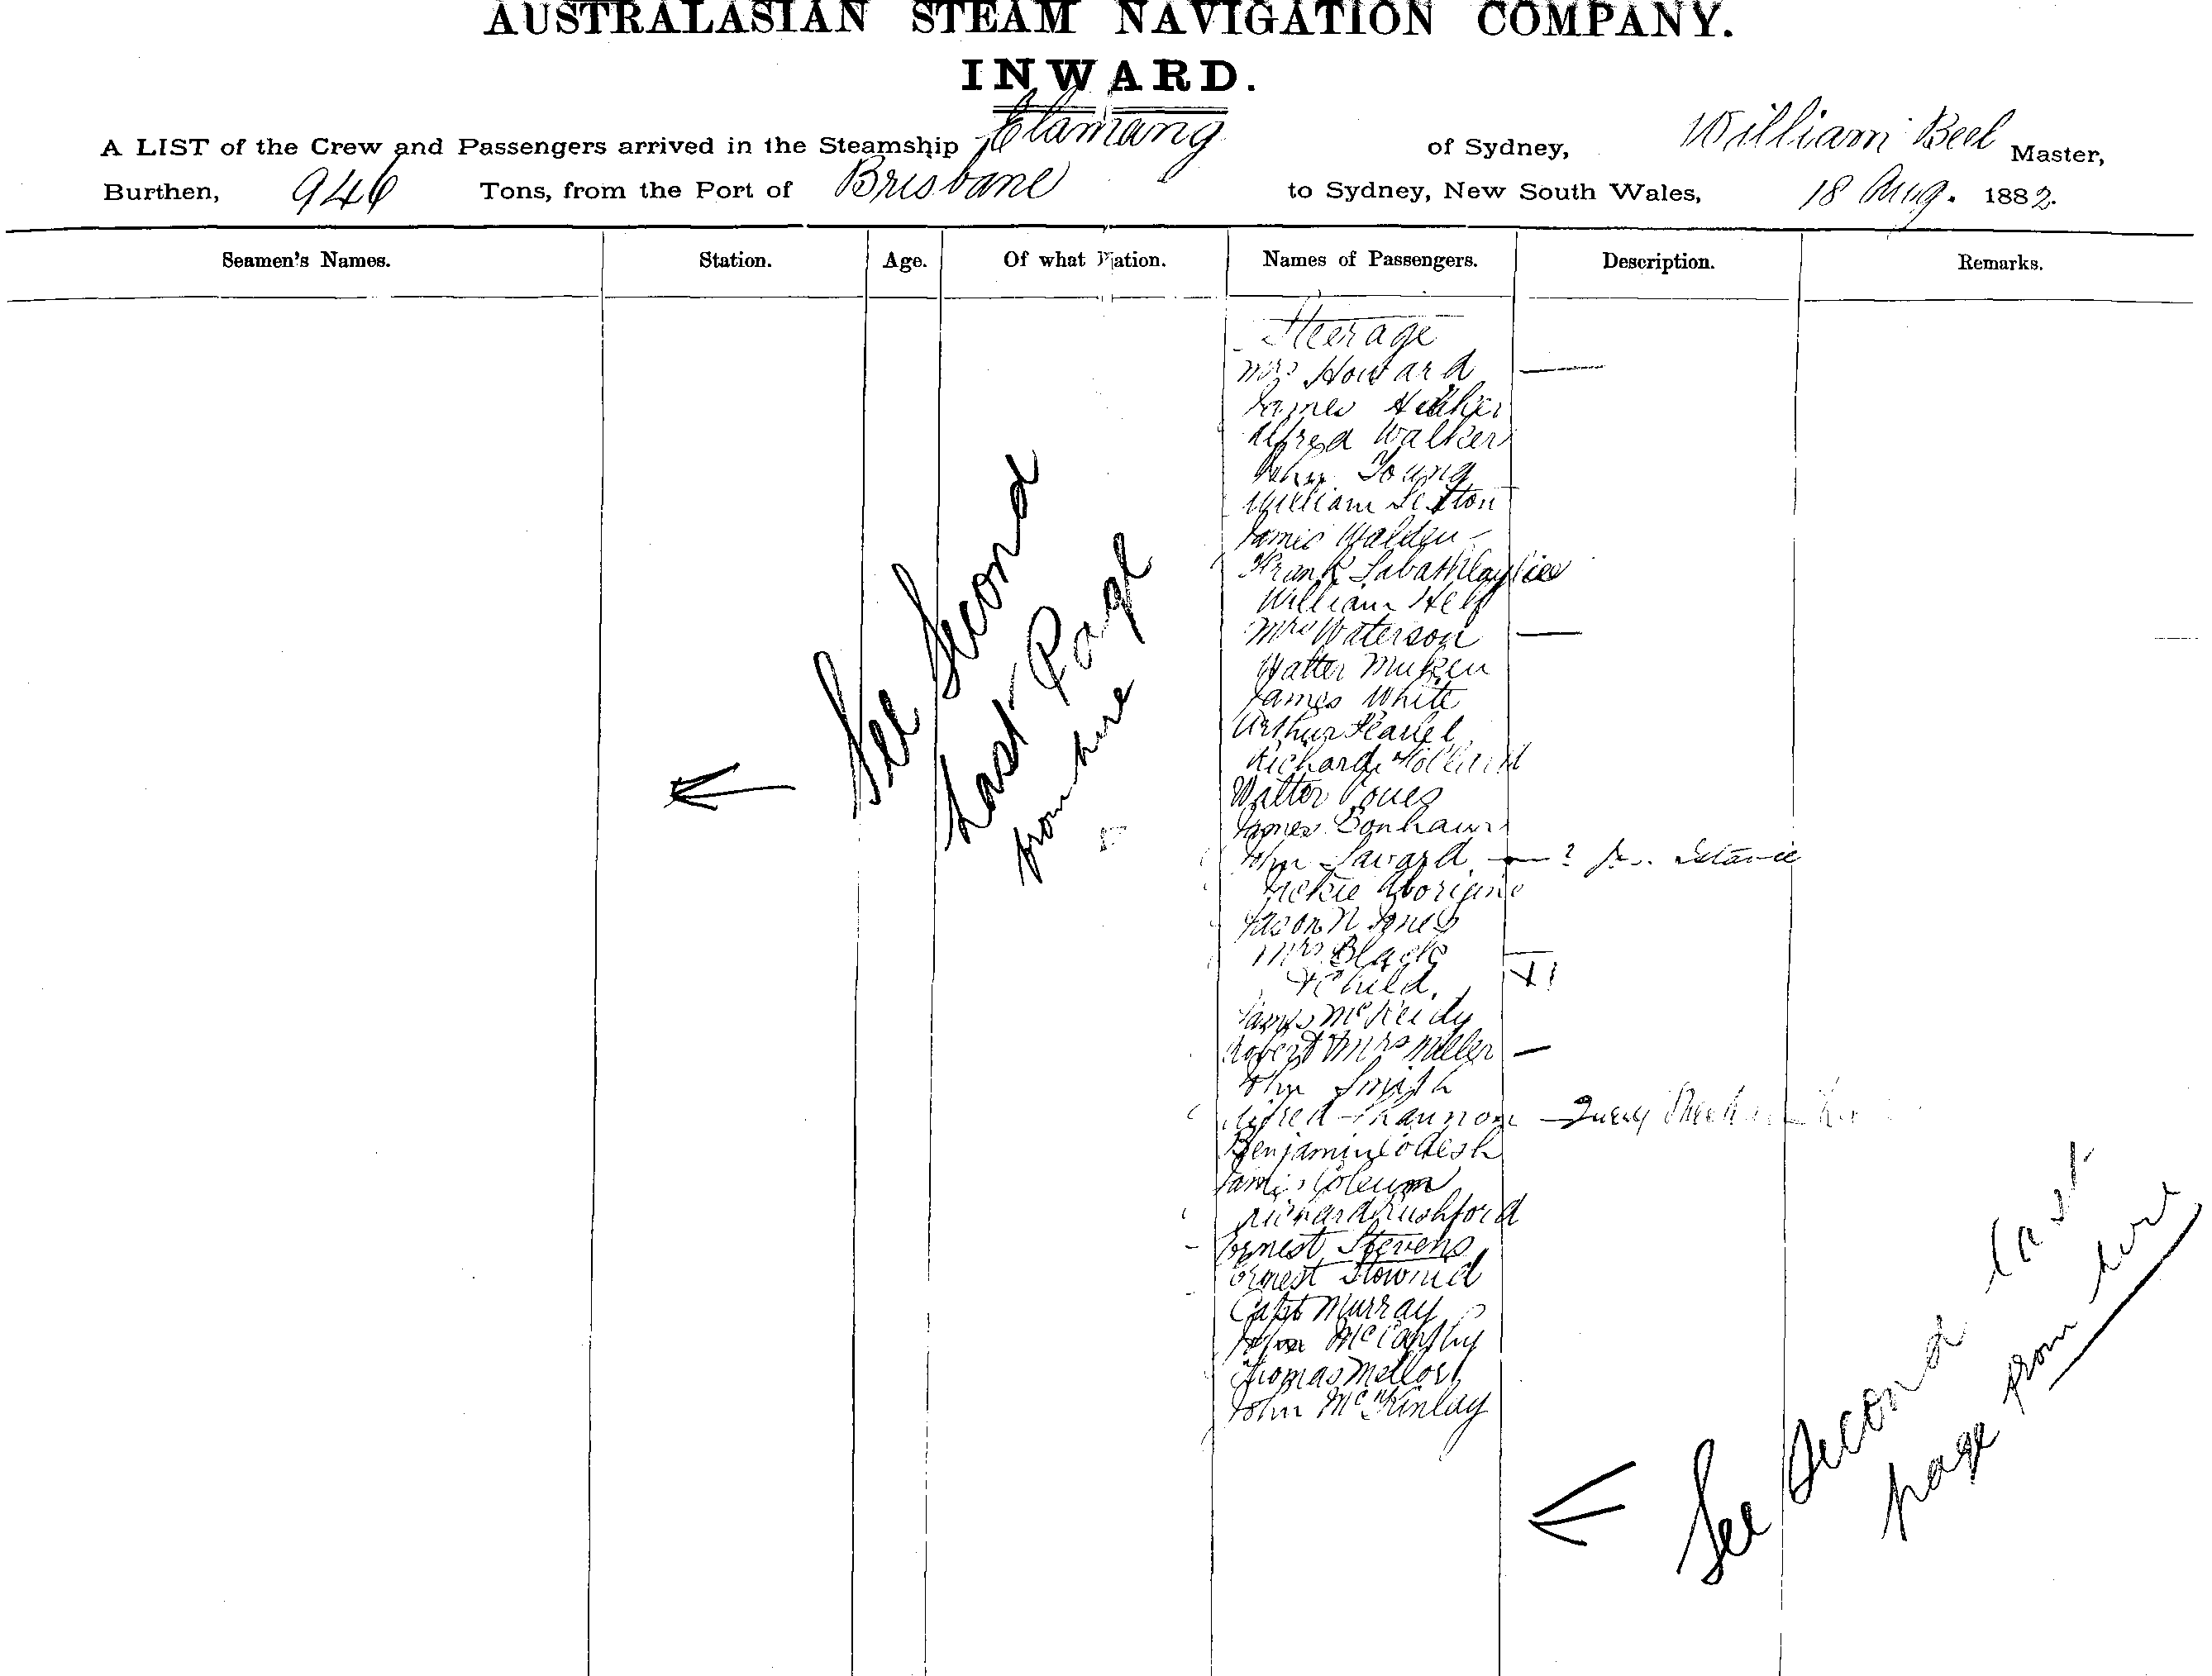 AUSTRALASIAN STEAM NAVIGATION COMPANY.
INWARD.
A LIST of the Crew and Passengers arrived in the Steamship Elamang of Sydney, William Beel Master,
Burthen, 946 Tons, from the Port of Brisbane to Sydney, New South Wales, 18 Aug. 1882.
Seamen's Names. Station. Age. Of what Nation. Names of Passengers. Description. Remarks.
Steerage
Mrs Howard
James
Alfred Walker
John Young
William Sexton
James Walden
Frank
William Helf
Mrs Waterson
Walter
James White
Arthur
Richard Holland
Walter Jones
James Bonham
John Savard
Jackie Aborigine
Jason N Jones
Mrs Black
& Child.
James McReidy
Robert & Mrs Miller
John Smith
Alfred Shannon
Benjamin
James
Richard Rushford
Ernest Stevens
Ernest
Capt Murray
John McCarthy
Thomas Mellor
John McKinlay
See Second
Last Page
from here
See Second last
page from here